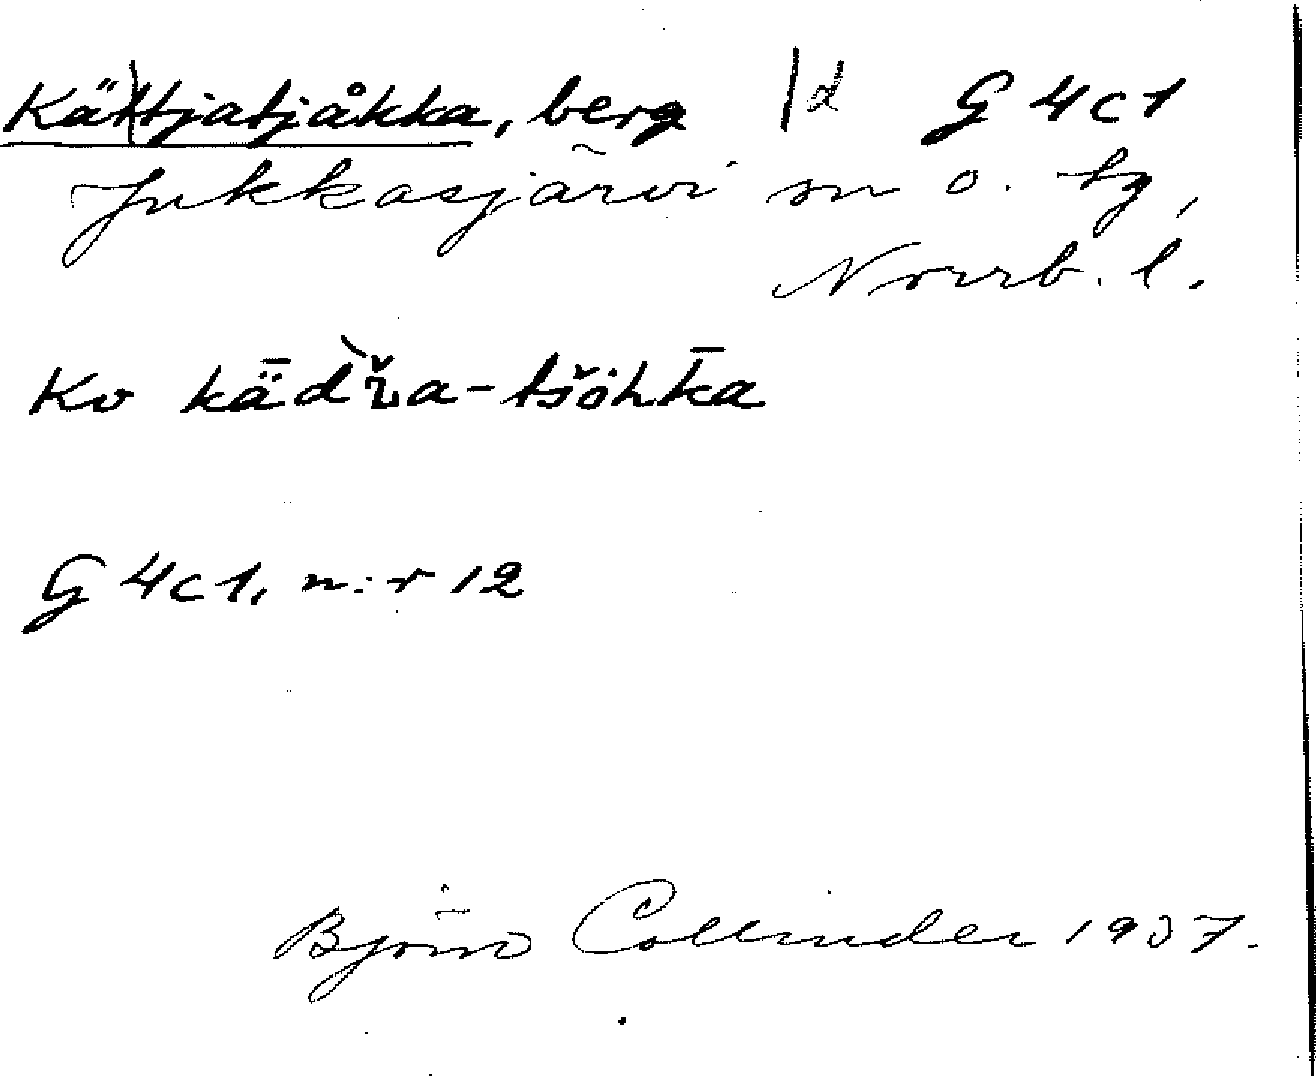 Kättjatjåkka, berg |d G 4c1
Jukkasjärvi sn o. tg,
Norrb. l.
Ko kǟd̀ža-tšȯhk̄a
G 4c1, n:r 12
Björn Collinder 1937.